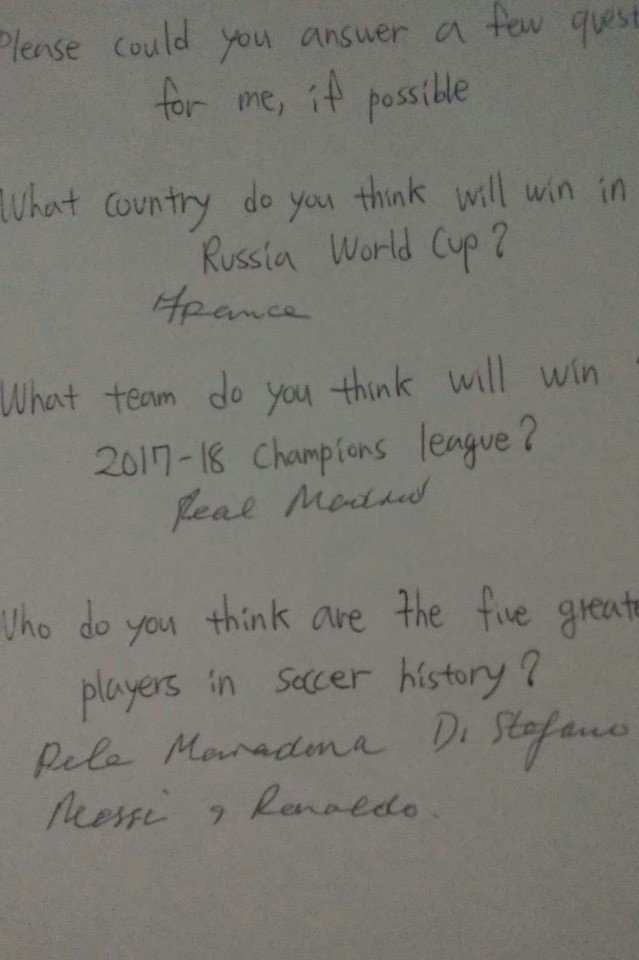 Please could you answer a few quest
for me, if possible
What country do you think will win in
Russia World Cup?
France
What team do you think will win
2017-18 Champions league?
Real Madrid
Who do you think are the five greate
players in soccer history?
Pele Maradona Di Stefano
Messi y Ronaldo.